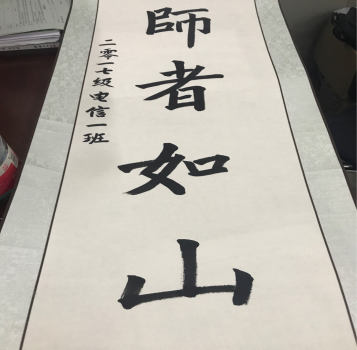 師者如山
二零一七级电信一班